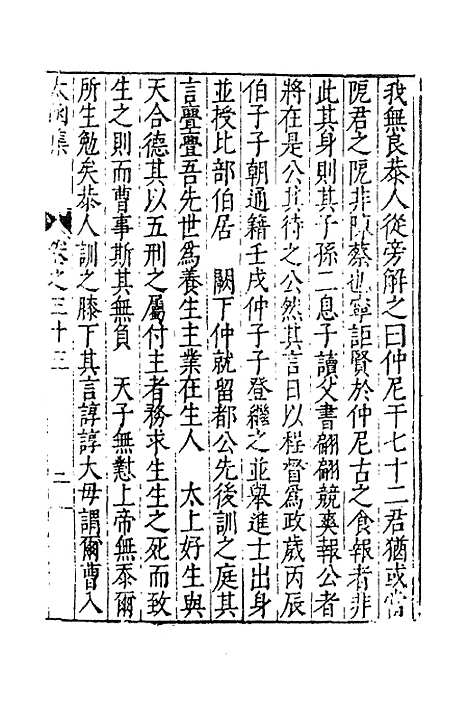 我無良恭人從旁解之曰仲尼干七十二君猶或嘗
阨君之阨非陳蔡也寧詎賢於仲尼古之食報者非
此其身則其子孫二息子讀父書翩翩競爽報公者
將在是公其待之公然其言日以程督為政歲丙辰
伯子子朝通籍壬戌仲子子登繼之並舉進士出身
並授比部伯居　闕下仲就留都公先後訓之庭其
言亹亹吾先世為養生主業在生人　太上好生與
天合德其以五刑之屬付主者務求生生之死而致
生之則而曹事斯其無負　天子無愆上帝無忝爾
所生勉矣恭人訓之膝下其言諄諄大母謂爾曹入
太函集　卷之三十三　二